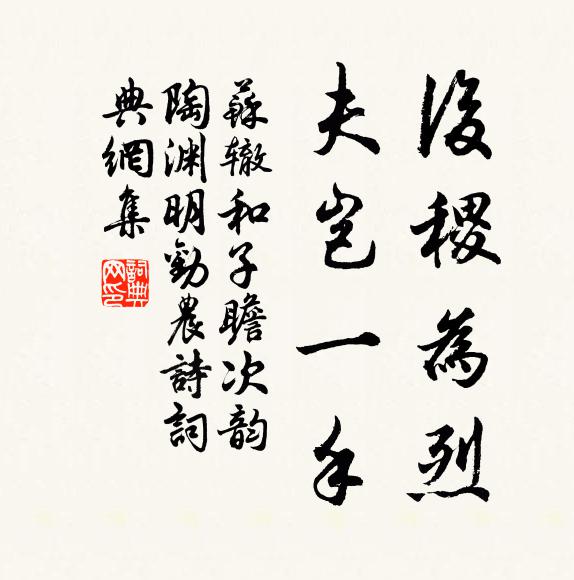 後稷為烈
夫豈一手
蘇轍和子瞻次韵
陶渊明勸農詩詞
典網集
詞典网印